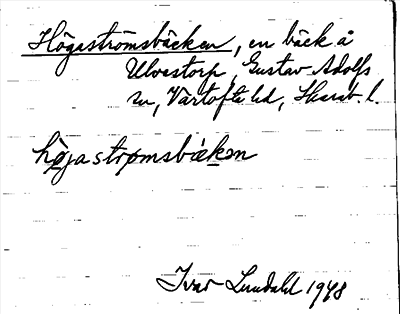 Högaströmsbäcken, en bäck å
Ulvestorp, Gustav Adolfs
sn, Vartofta hd, Skarab. l.
högastrømsbäkən
Ivar Lundahl 1948